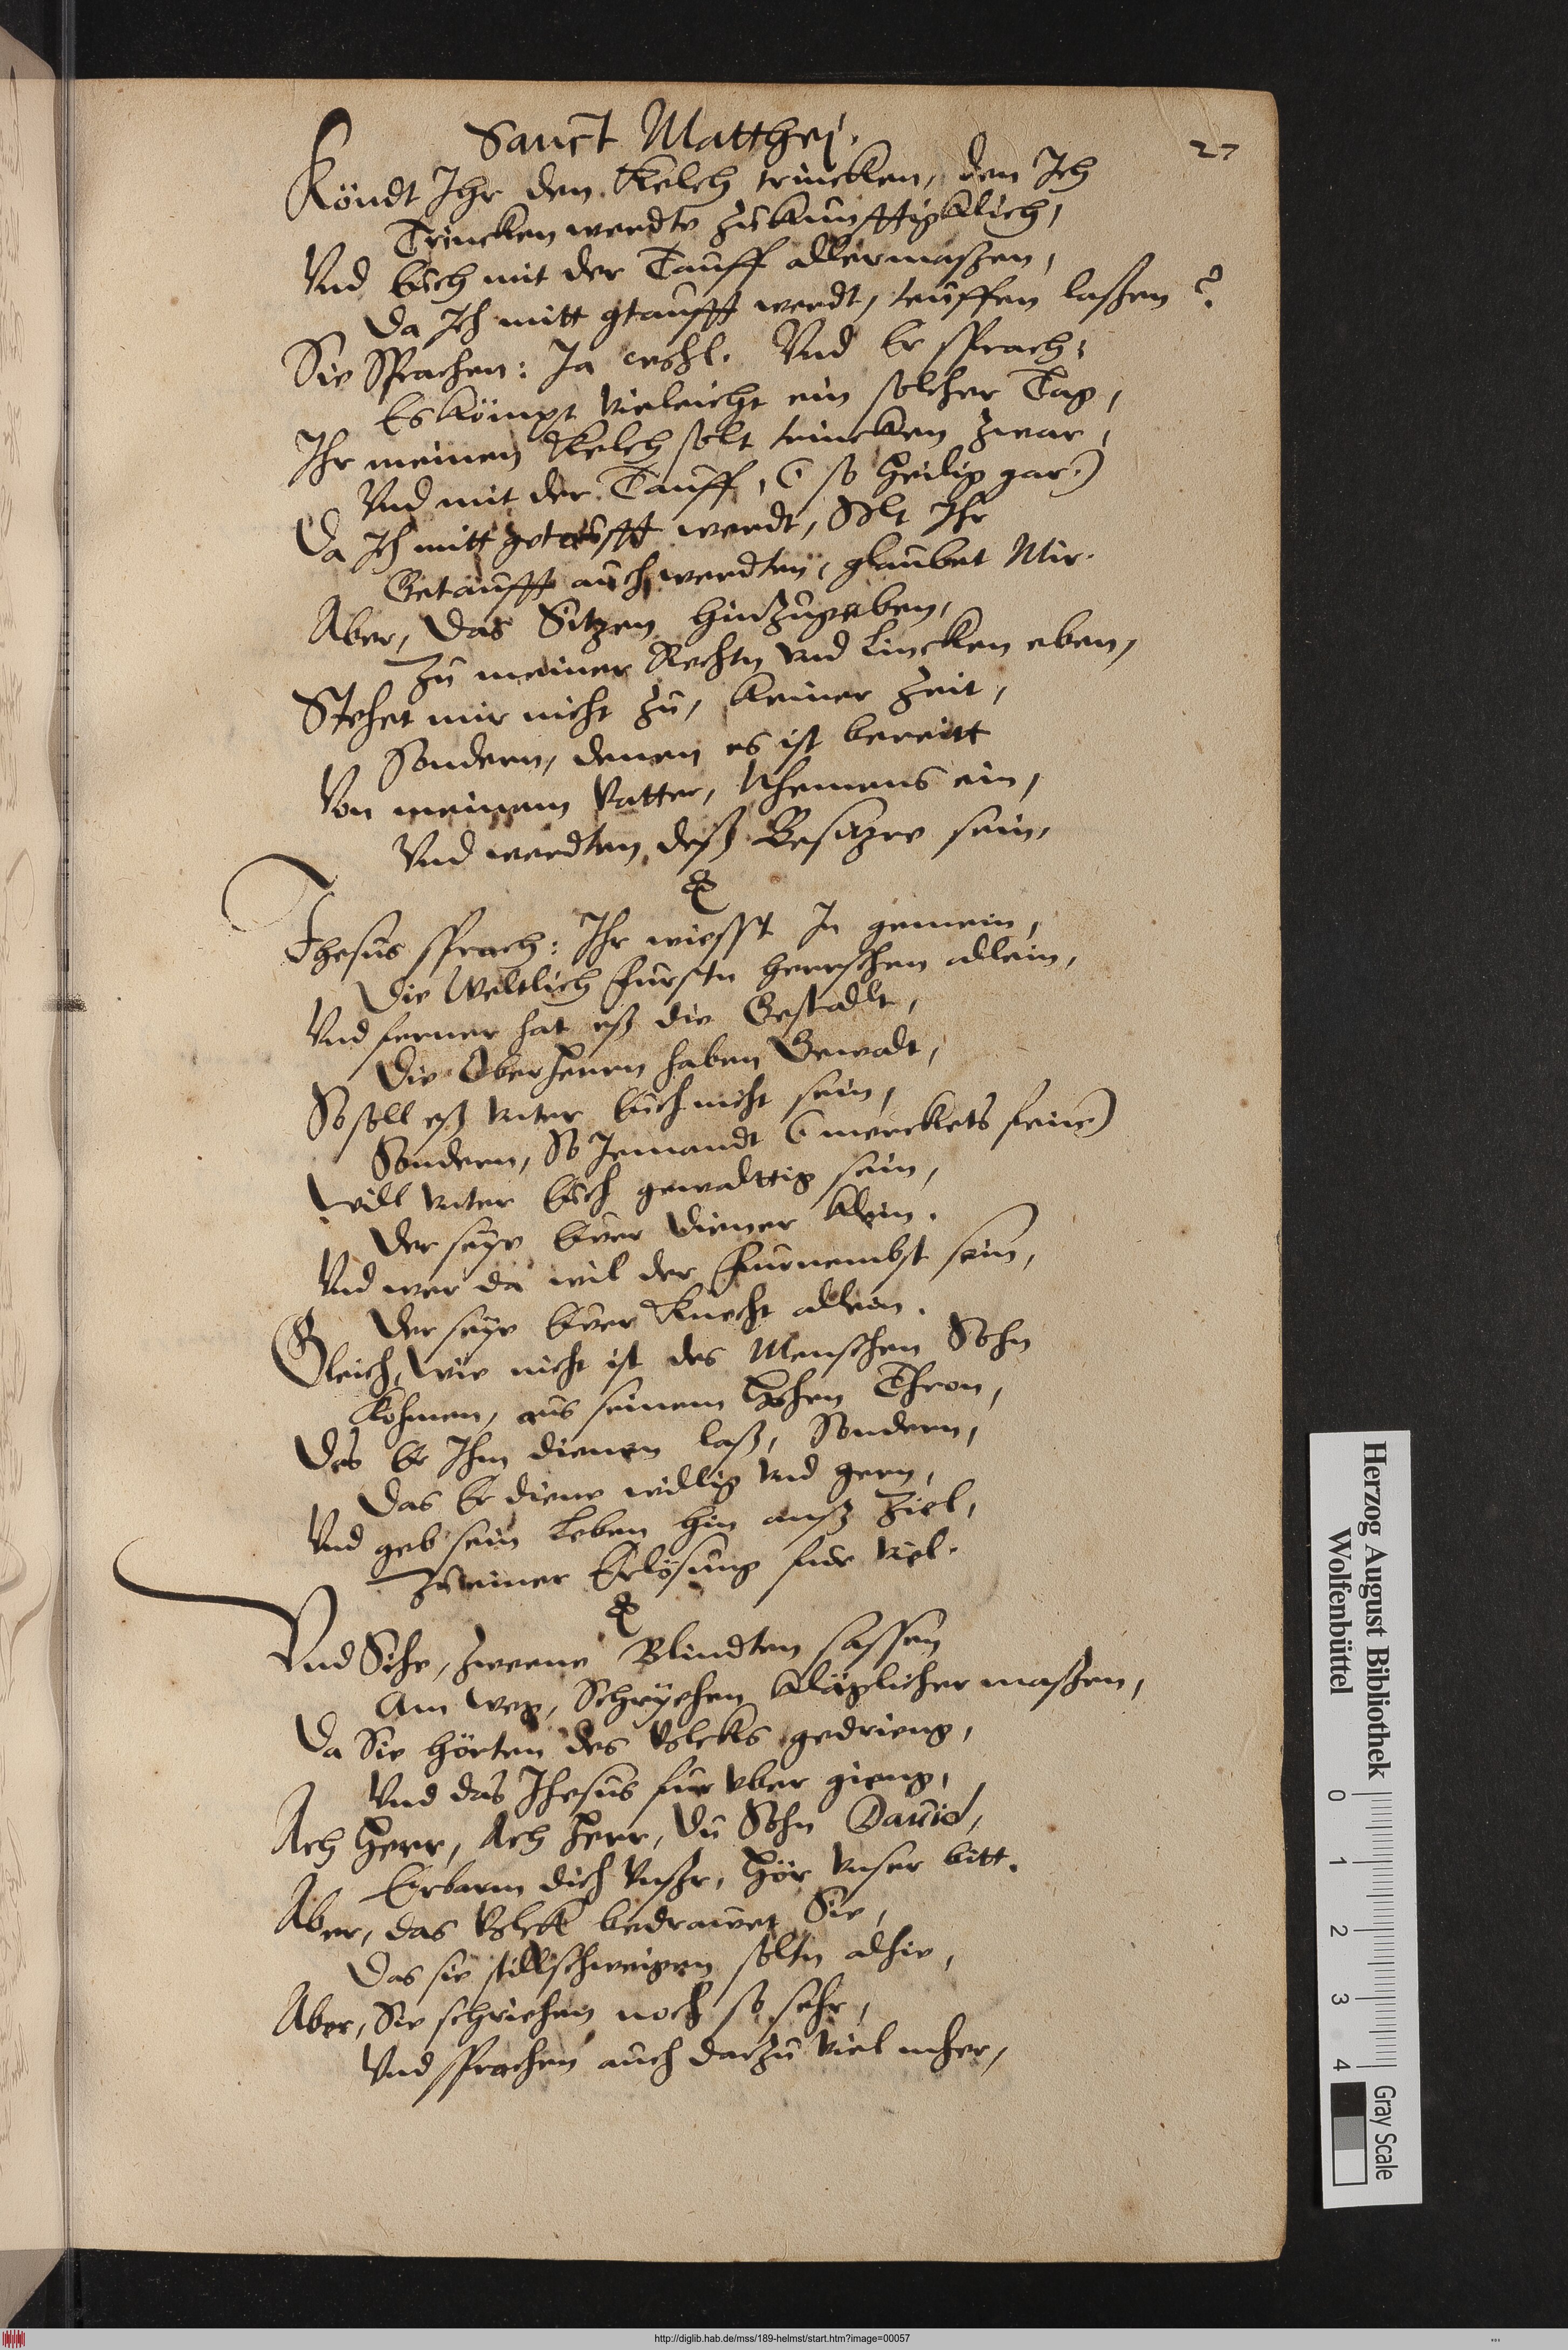 Sanct Matthej.
27
Köndt Ihr den Kelch trincken, den Ich
Trincken werdte zukunfftigklich,
Vnd Euch mit der Tauff allermaßen,
Da Ich mitt gtaufft werdt, teuffen laßen?
Sie Sprachen: Ja wohl. Vnd Er sprach:
Es kömpt vieleicht ein solcher Tag,
Ihr meinen Kelch solt trincken zwar,
Vnd mit der Tauff, (so heilig gar)
Da Ich mitt getaufft werdt, Solt Ihr
Getaufft auch werdten, glaubet Mir.
Aber, das Sitzen hinzugeben,
Zu meiner Rechtn vnd Lincken eben,
Stehet mir nicht zu, keiner Zeit,
Sondern, denen es ist bereitt
Von meinem Vatter, Nhemens ein,
Vnd werdten deß Besitzre sein.
Jhesus sprach: Ihr wiesst In gemein,
Die Weltlich Furstn herrschen allein,
Vnd ferner hat eß die Gestallt,
Die Oberherrn haben Gewalt,
So soll eß vnter Euch nicht sein,
Sondern, So Jemandt (merckets fein)
Will vnter Euch gewalttig sein,
Der seye Euer Diener klein.
Vnd wer da wil der Furnembst sein,
Der seye Euer Knecht allein.
Gleich, wie nicht ist des Menschen Sohn
Kohmen, aus seinem hohen Thron,
Das Er Ihm dienen laß, Sondern,
Das Er diene willig vnd gern,
Vnd geb sein Leben hin anß Ziel,
Zu einer Erlösung fur viel.
Vnd Sihe, zweene Blindten sassen
Am Weg, Schryehen kläglicher maßen,
Da Sie hörten des Volcks gedrieng,
Vnd das Jhesus fur vber gieng,
Ach Herr, Ach Herr, Du Sohn Dauid,
Erbarm dich vnßr, hör vnser bitt.
Aber, das Volck bedrawet Sie,
Das sie stillschweigen soltn alhie,
Aber, Sie schriehen noch so sehr,
Vnd sprachen auch darzu viel mher,
Herzog August Bibliothek
Wolfenbüttel
0 1 2 3 4
Gray Scale
http://diglib.hab.de/mss/189-helmst/start.htm?image=00057